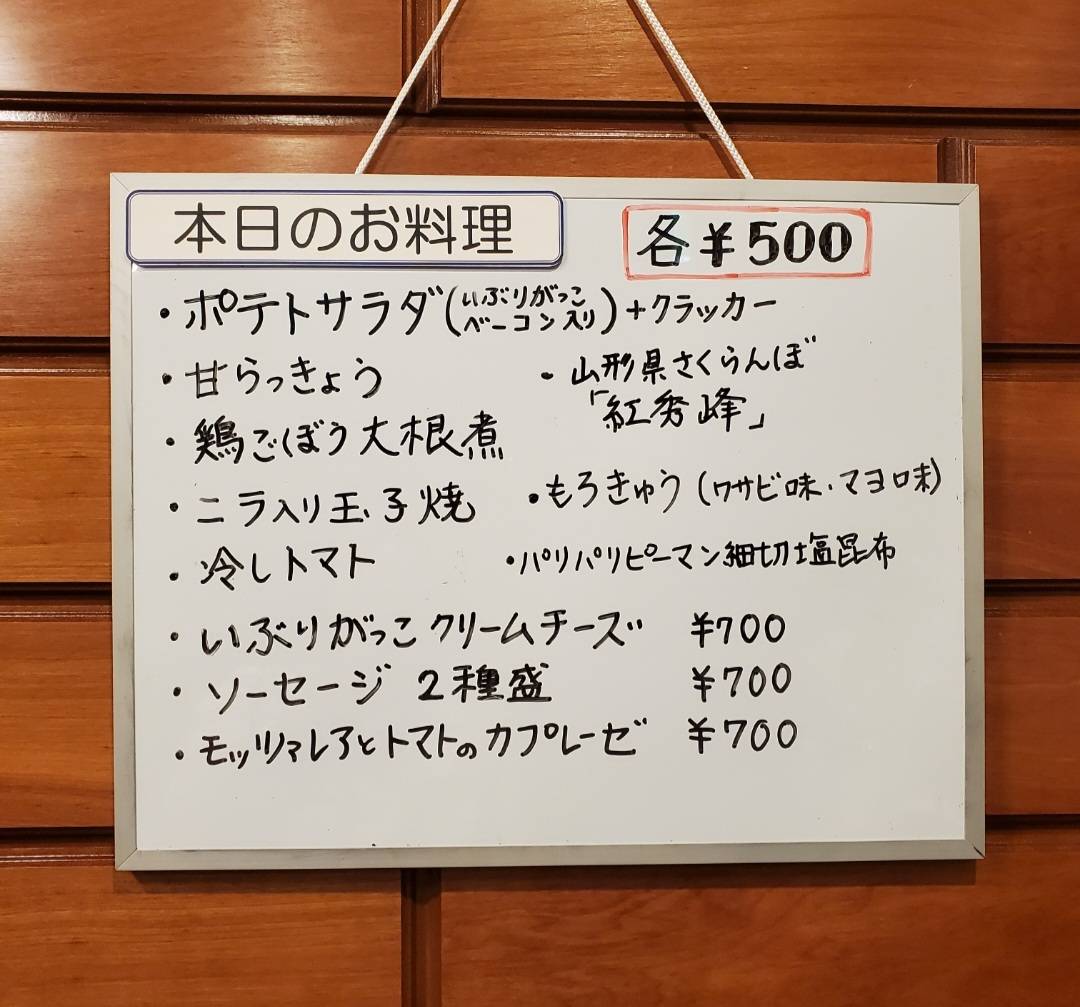 本日のお料理
各¥500
・ポテトサラダ(いぶりがっこベーコン入り)+クラッカー
・甘らっきょう
・山形県さくらんぼ
「紅秀峰」
・鶏ごぼう大根煮
・ニラ入り玉子焼
・もろきゅう(ワサビ味・マヨ味)
・冷しトマト
・パリパリピーマン細切塩昆布
・いぶりがっこクリームチーズ ¥700
・ソーセージ 2種盛 ¥700
・モッツァレアとトマトのカプレーゼ ¥700